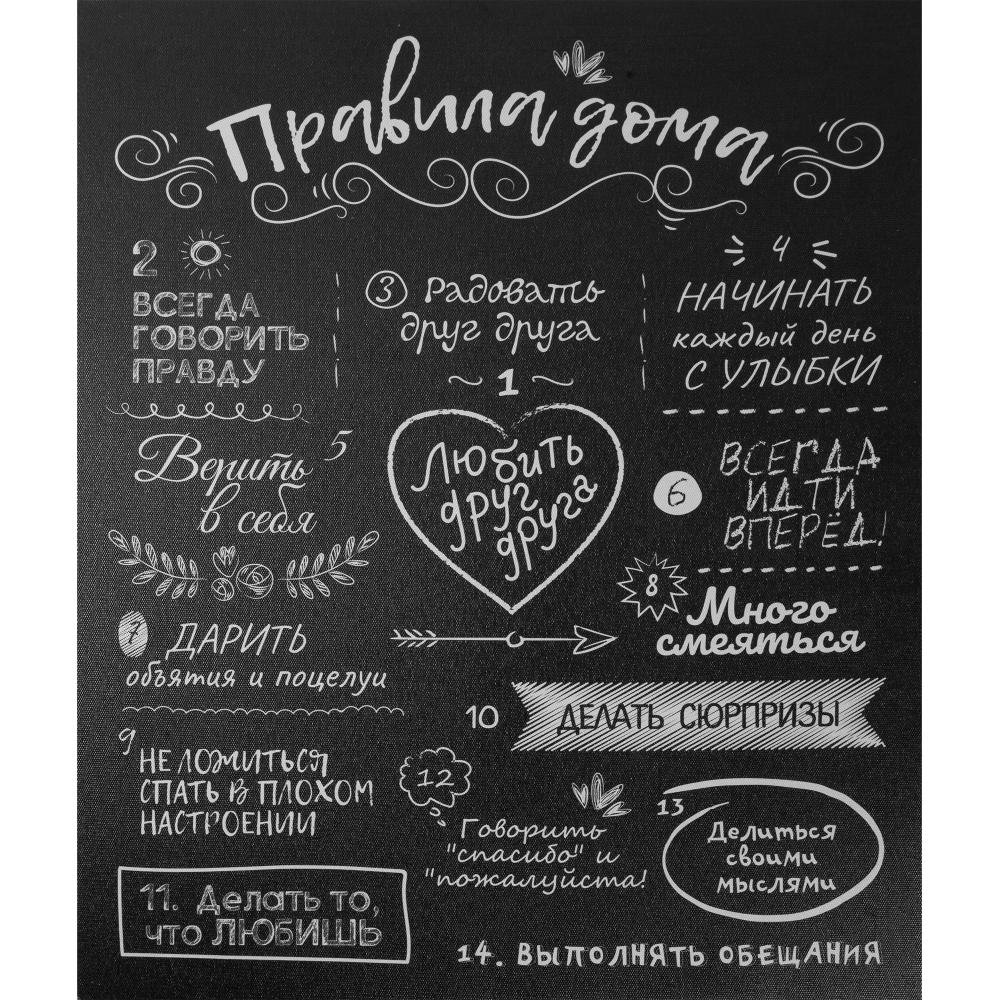 Правила дома
2
ВСЕГДА
ГОВОРИТЬ
ПРАВДУ
3 Радовать
друг друга
4
НАЧИНАТЬ
каждый день
С УЛЫБКИ
1
Любить
друг
друга
5
Верить
в себя
6
ВСЕГДА
ИДТИ
ВПЕРЁД!
7 ДАРИТЬ
объятия и поцелуи
8
Много
смеяться
9
НЕ ЛОЖИТЬСЯ
СПАТЬ В ПЛОХОМ
НАСТРОЕНИИ
10 ДЕЛАТЬ СЮРПРИЗЫ
11. Делать то,
что ЛЮБИШЬ
12
Говорить
"спасибо" и
"пожалуйста!
13
Делиться
своими
мыслями
14. ВЫПОЛНЯТЬ ОБЕЩАНИЯ